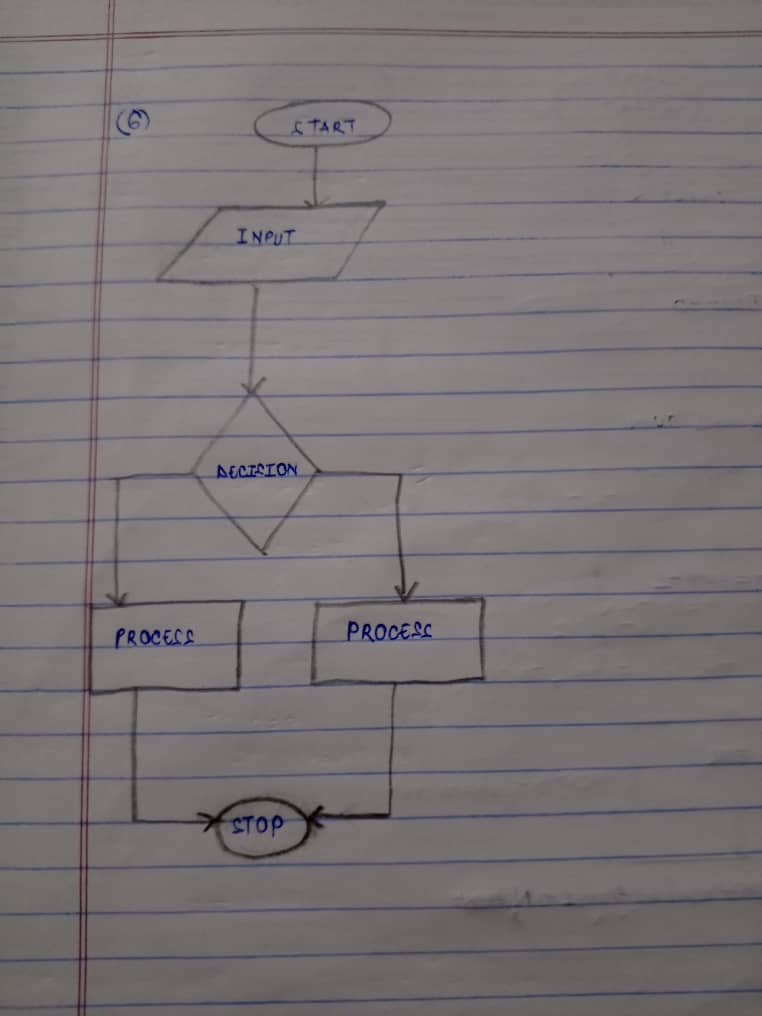 (6)
START
INPUT
DECISION
PROCESS
PROCESS
STOP